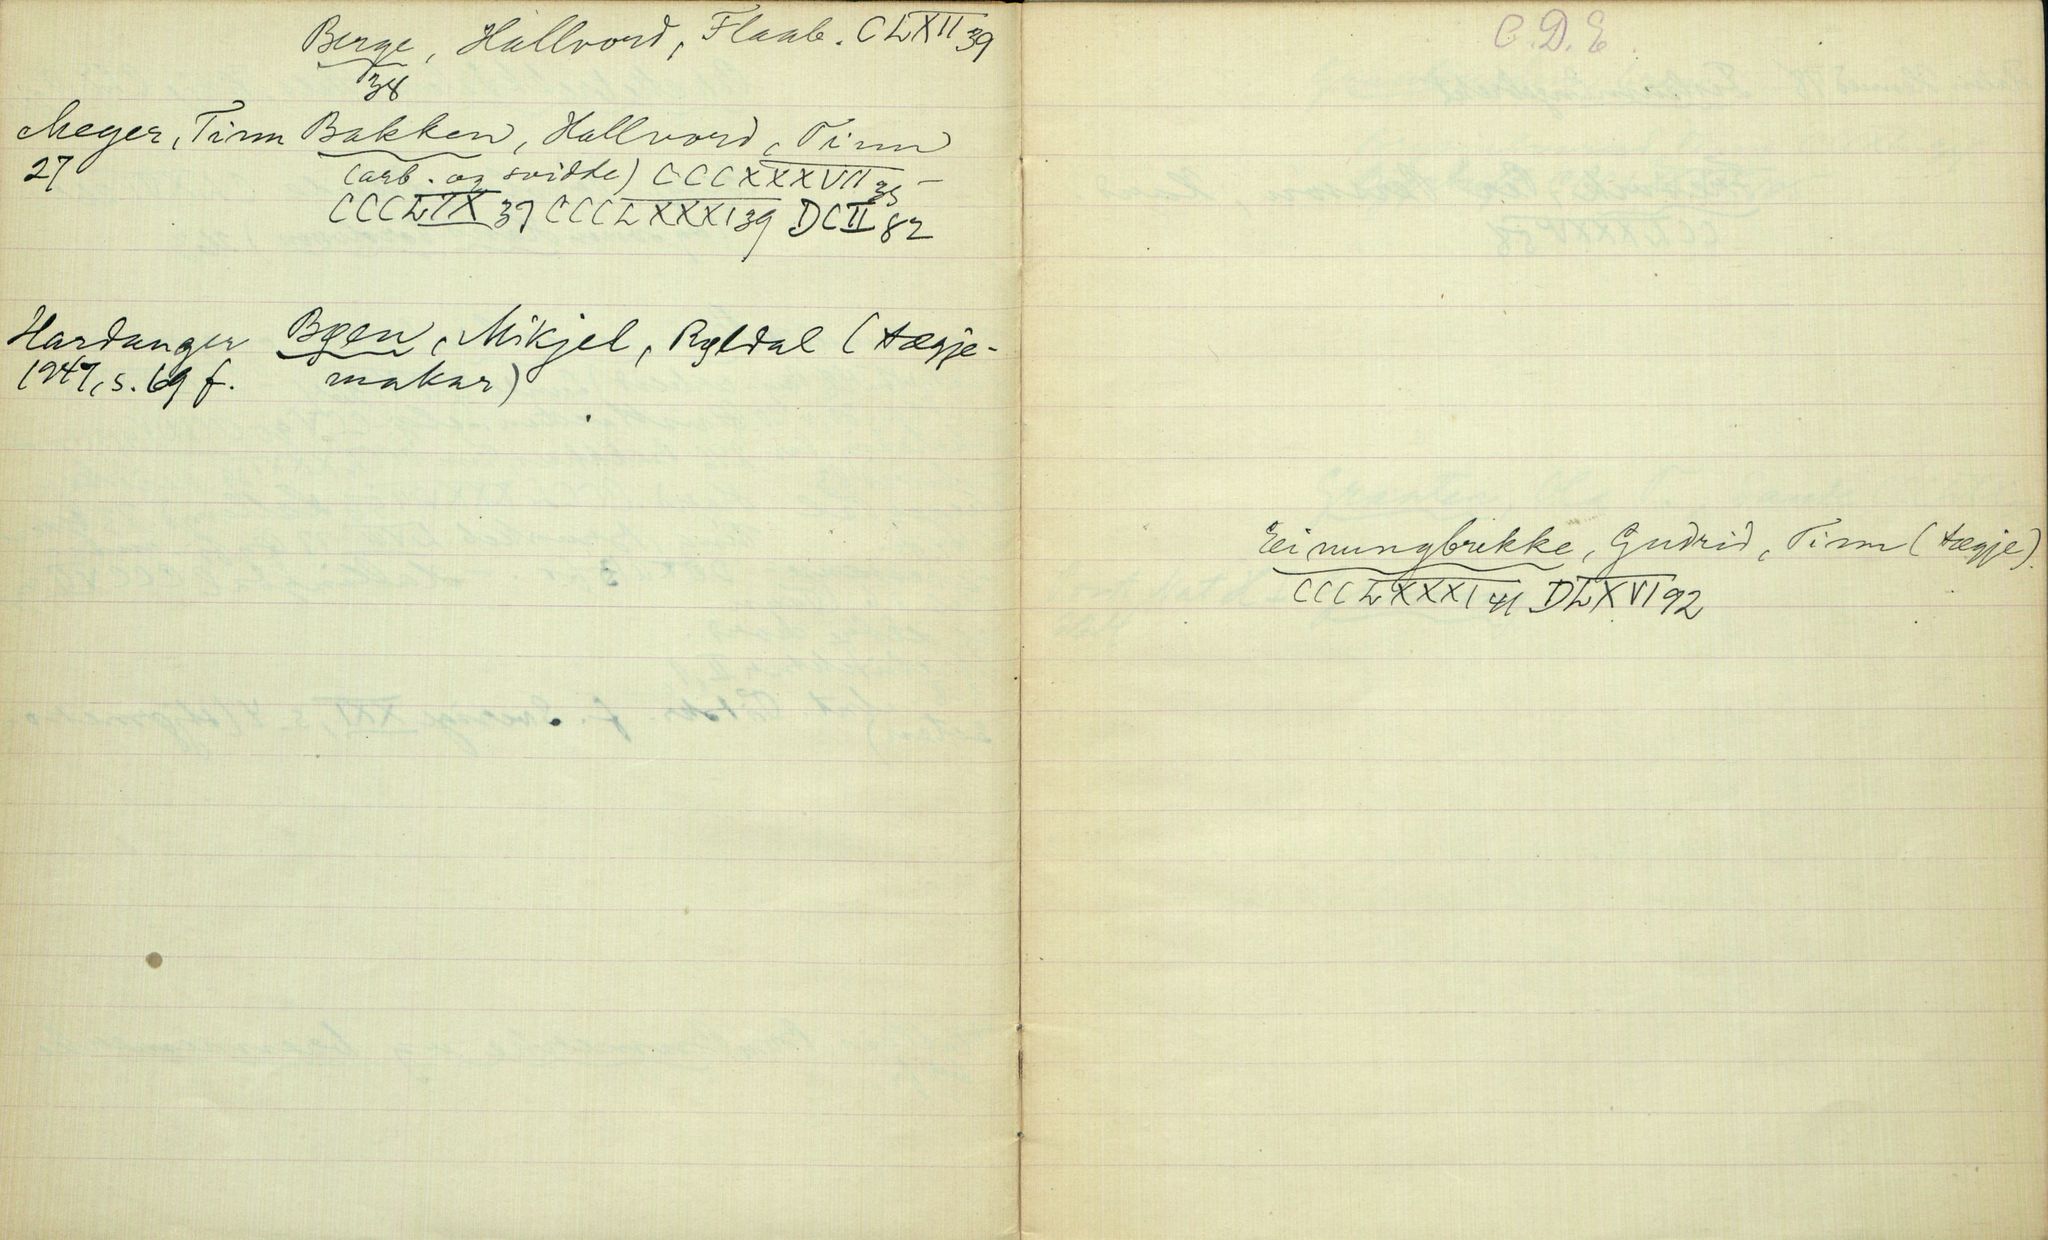 Berge, Hallvord, Flaab. CLXII 39
38
Meyer, Tinn Bakken, Hallvord, Tinn
27 (arb. og svidde) CCCXXXVII 35 –
CCCLIX 37 CCCLXXXI 39 DCII 82
Hardanger Bøen, Mikjel, Røldal (tægje-
1947, s. 69 f. makar)
C. D. E.
Einungbrekke, Gudrid, Tinn (tægje).
CCCLXXXI 41 DLXVI 92